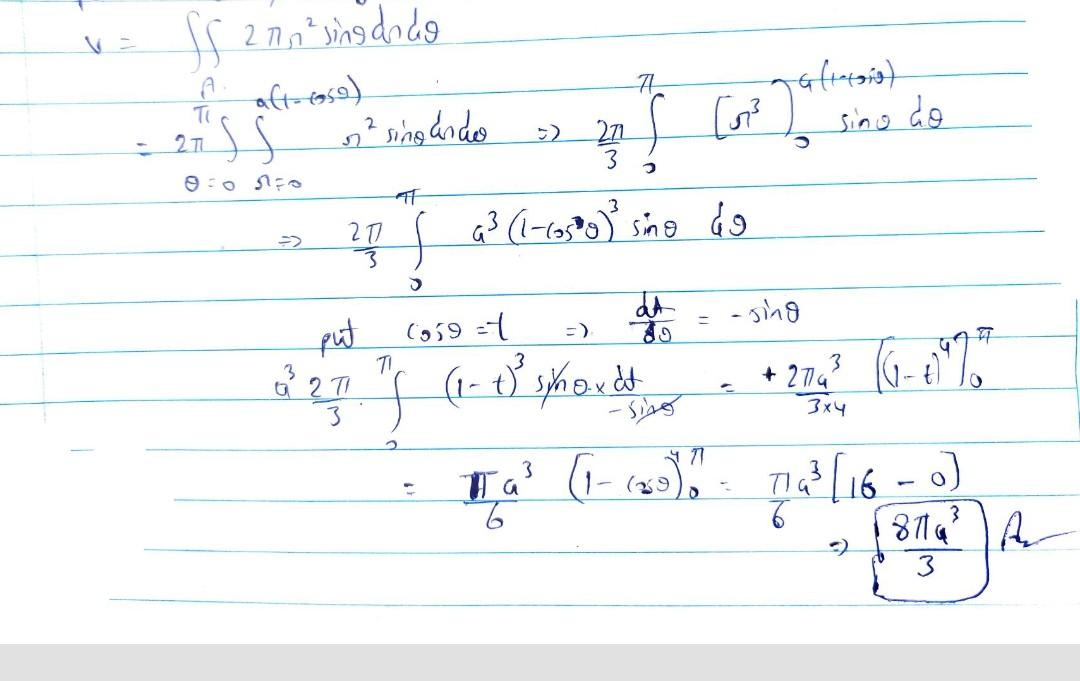 v = ∬ 2πr² sinθ dr dθ
A
= 2π ∫_{θ=0}^{π} ∫_{r=0}^{a(1-cosθ)} r² sinθ dr dθ => 2π/3 ∫_0^π [r³]_0^{a(1-cosθ)} sinθ dθ
=> 2π/3 ∫_0^π a³ (1-cosθ)³ sinθ dθ
put cosθ = t => dt/dθ = - sinθ
a³ 2π/3 ∫_0^π (1-t)³ sinθ x dt/-sinθ = + 2πa³/3x4 [(1-t)⁴]_0^π
= πa³/6 (1-cosθ)⁴_0^π = πa³/6 [16 - 0]
=> 8πa³/3